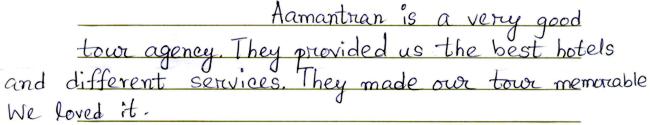 Aamantran is a very good
tour agency. They provided us the best hotels
and different services. They made our tour memorable
We loved it.